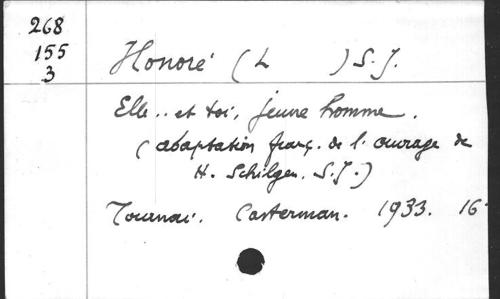 268
155
3
Honoré (L ) S.J.
Elle.. et toi, jeune homme.
(adaptation franç. de l'ouvrage de
H. Schilgen. S.J.)
Tournai. Casterman. 1933. 16